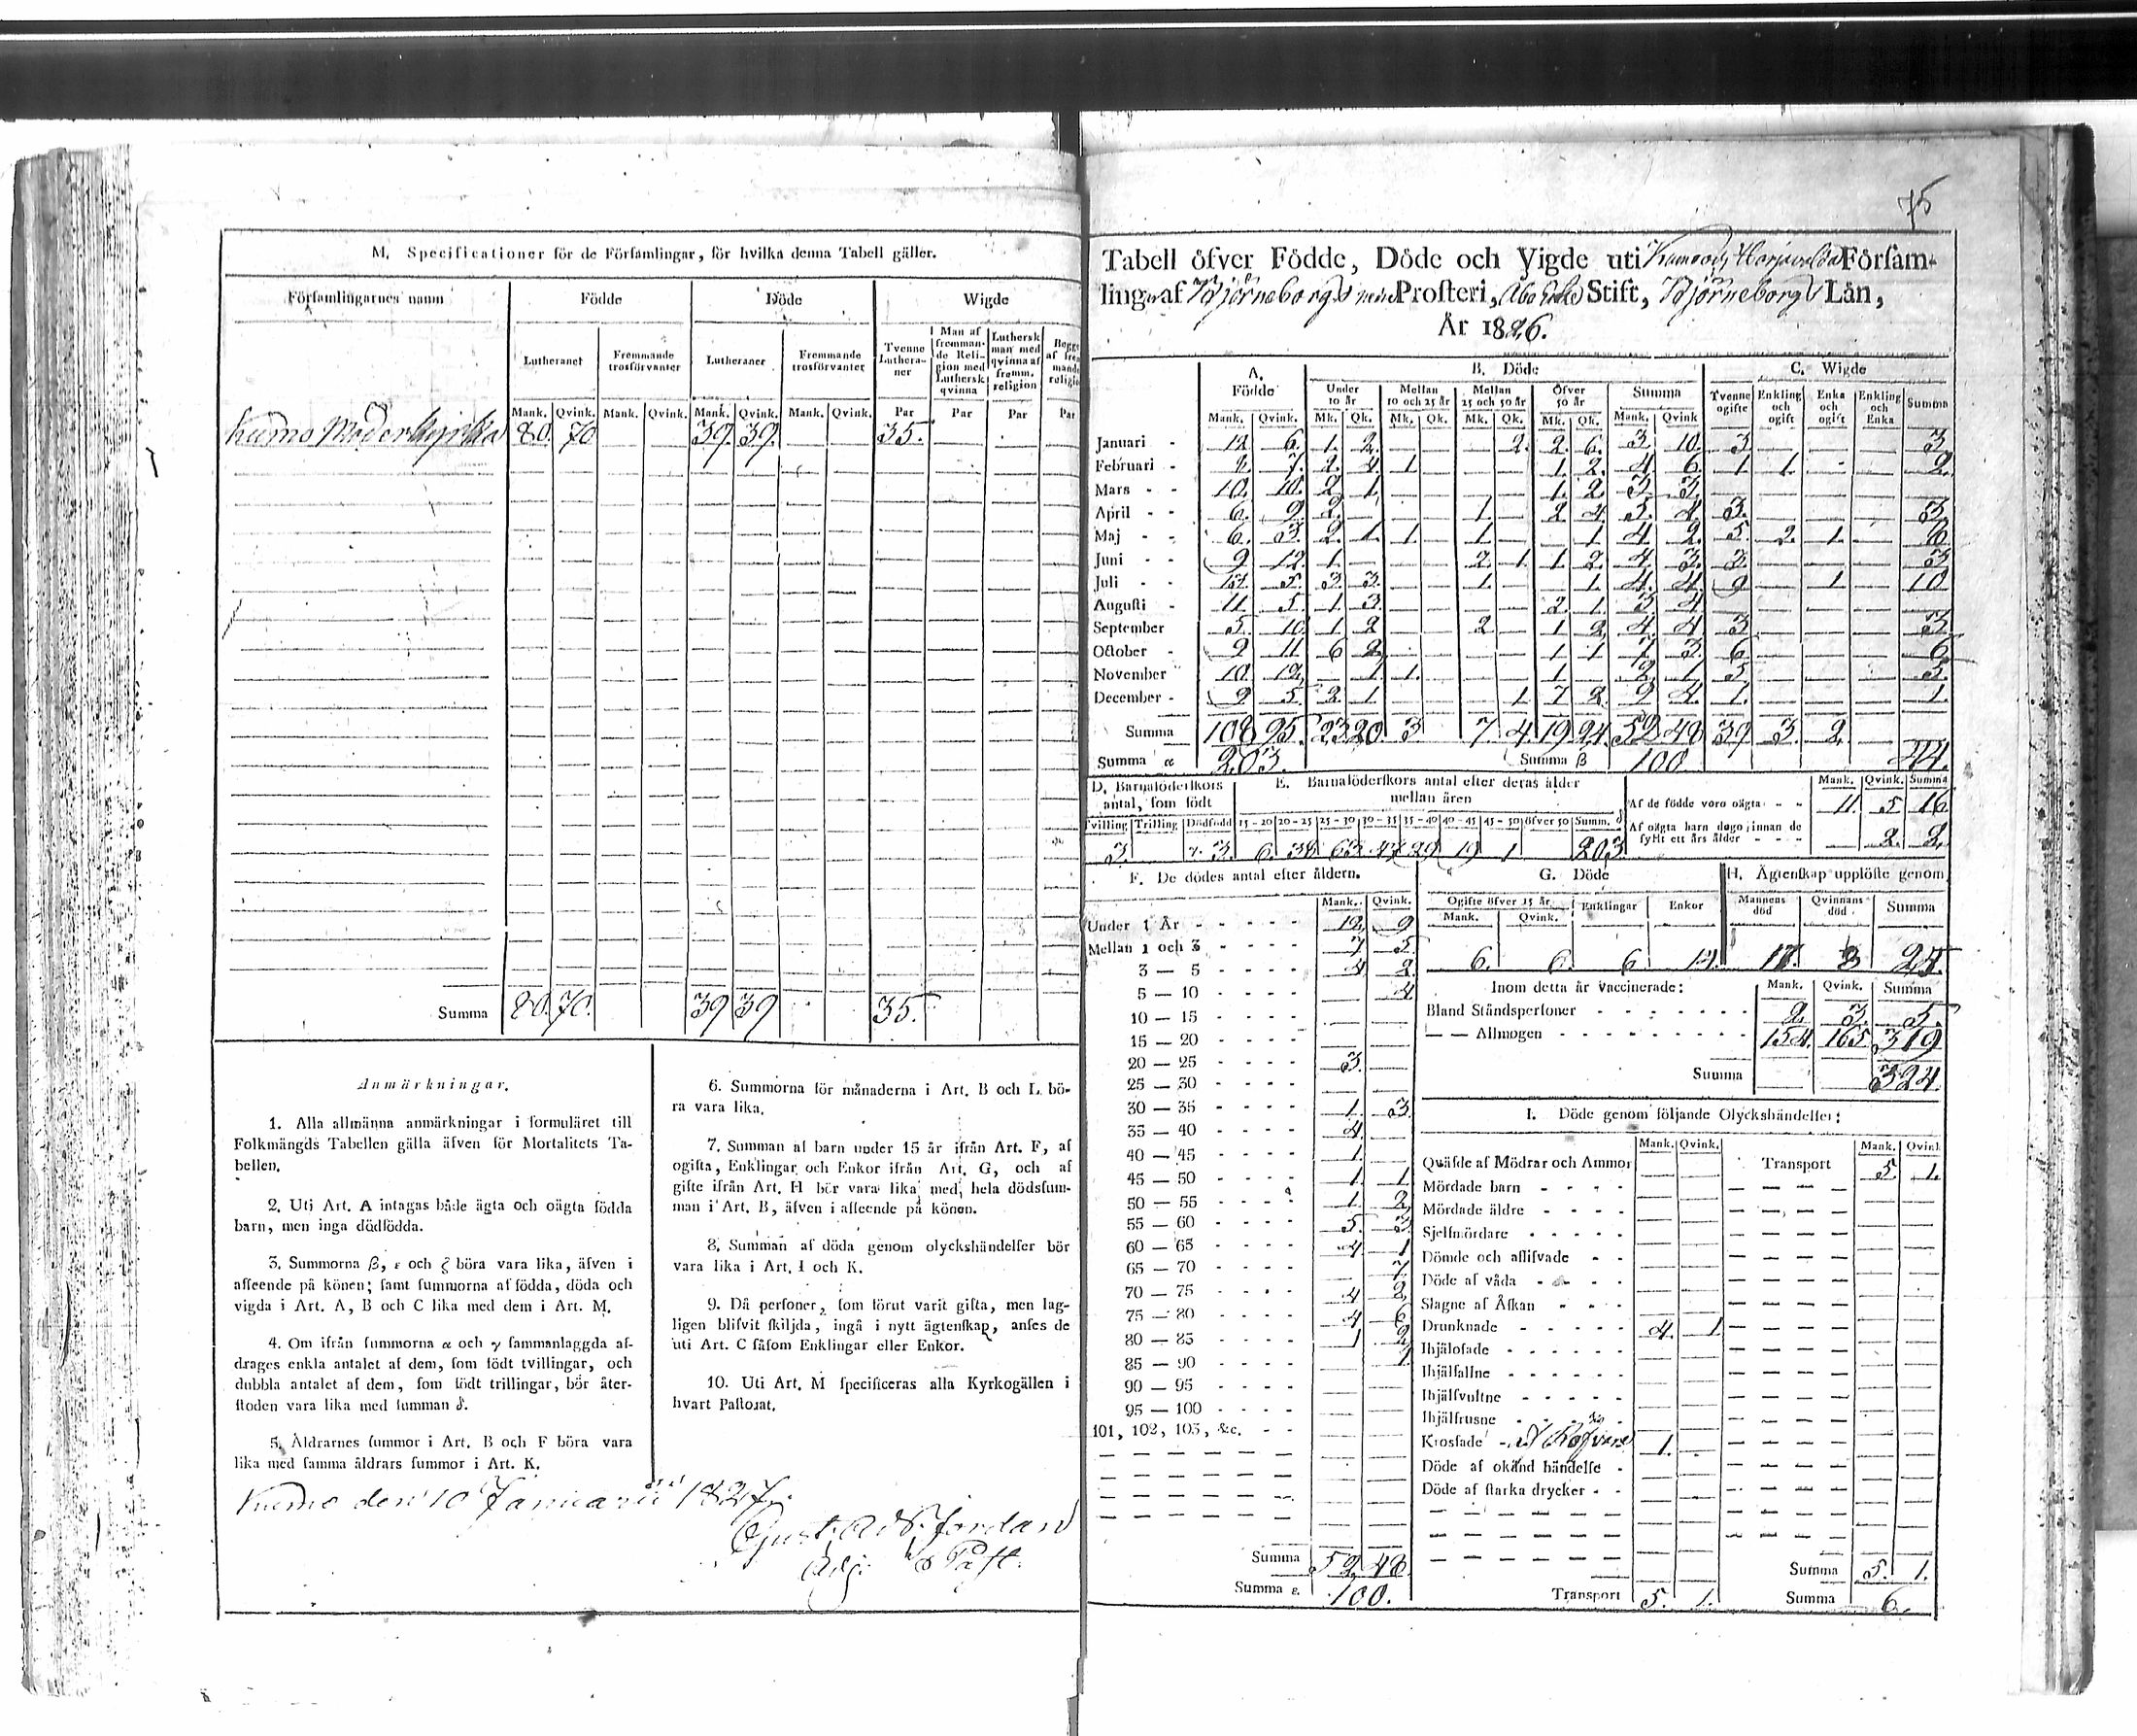 M. Specificationer för de Församlingar, för hvilka denna Tabell gäller.
Församlingarnes namn | Födde | Döde | Wigde
Lutheraner | Fremmande trosförvanter | Lutheraner | Fremmande trosförvanter | Tvenne Lutheraner | Man af fremmande Religion med Luthersk qvinna | Luthersk man med qvinna af fremm. religion
Mank. | Qvink. | Mank. | Qvink. | Mank. | Qvink. | Mank. | Qvink. | Par | Par | Par | Par
Kumo Moderkyrka 80. 70 39. 39. 35.
Summa 80. 70. 39 39 35.
Anmärkningar.
1. Alla allmänna anmärkningar i formuläret till
Folkmängds Tabellen gälla äfven för Mortalitets Ta-
bellen.
2. Uti Art. A intagas både ägta och oägta födda
barn, men inga dödfödda.
3. Summorna β, ε och ζ böra vara lika, äfven i
afseende på könen; samt summorna af födda, döda och
vigda i Art. A, B och C lika med dem i Art. M.
4. Om ifrån summorna α och γ sammanlaggda af-
drages enkla antalet af dem, som födt tvillingar, och
dubbla antalet af dem, som födt trillingar, bör åter-
stoden vara lika med summan δ.
5. Åldrarnes summor i Art. B och F böra vara
lika med samma åldrars summor i Art. K.
6. Summorna för månaderna i Art. B och L bö-
ra vara lika.
7. Summan af barn under 15 år ifrån Art. F, af
ogifta, Enklingar och Enkor ifrån Art. G, och af
gifte ifrån Art. H bör vara lika med hela dödssum-
man i Art. B, äfven i afseende på könen.
8. Summan af döda genom olyckshändelser bör
vara lika i Art. I och K.
9. Då personer, som förut varit gifta, men lag-
ligen blifvit skiljda, ingå i nytt ägtenskap, anses de
uti Art. C såsom Enklingar eller Enkor.
10. Uti Art. M specificeras alla Kyrkogällen i
hvart Pastorat.
Kumo den 10 Januarii 1827.
Gust. Ad. Sjordan
Adj. Past.
75
Tabell öfver Födde, Döde och Vigde uti Kumo och Harjavalda Försam-
lingar af Björneborgs nedre Prosteri, Åbo Erke Stift, Björneborgs Län,
År 1826.
A. Födde | B. Döde | C. Wigde
Under 10 år | Mellan 10 och 25 år | Mellan 25 och 50 år | Öfver 50 år | Summa | Tvenne ogifte | Enkling och ogift | Enka och ogift | Enkling och Enka | Summa
Mank. | Qvink. | Mk. | Qk. | Mk. | Qk. | Mk. | Qk. | Mk. | Qk. | Mank. | Qvink
Januari 12 6. 1. 2. 2. 2. 6. 3. 10. 3 3
Februari 7. 2. 1 1. 2. 4. 6. 1 1. 2.
Mars 10. 10. 2. 1. 1. 2. 3. 3.
April 6. 9. 2. 1. 2 4. 5. 4 3. 3
Maj 6. 3. 2. 1. 1. 1. 1. 4. 2. 5 2. 1. 8
Juni 9 12. 1. 2. 1. 1. 2. 4. 3. 3. 3
Juli 5. 3. 3. 1. 1. 4. 4. 9 1. 10
Augusti 11. 5. 1. 3. 2. 1. 3 4
September 5. 10. 1. 2 2 1. 2. 4. 4 3 3
October 9 11 6 2 1 1 7 3. 6. 6
November 10. 12. 1. 1. 1. 2. 1. 5 5.
December 9 5. 2. 1. 1. 7 2. 9 4. 1. 1.
Summa 108 95. 23 20. 3 7. 4. 19 24. 52 48 39 3. 2.
Summa α 203. Summa β 100. 44.
D. Barnaföderskors antal, som födt
Tvilling | Trilling | Dödfödd
3. γ. 3.
E. Barnaföderskors antal efter deras ålder mellan åren
15-20 | 20-25 | 25-30 | 30-35 | 35-40 | 40-45 | 45-50 | öfver 50 | Summ. δ
6. 38 63 47 29 19 1 203
Mank. | Qvink. | Summa
Af de födde voro oägta 11. 5 16
Af oägta barn dogo innan de fyllt ett års ålder 2. 2.
F. De dödes antal efter åldern.
Mank. | Qvink.
Under 1 År 12 9
Mellan 1 och 3 7 5
3 — 5 4 2.
5 — 10 4.
10 — 15
15 — 20
20 — 25 3.
25 — 30
30 — 35 1. 3
35 — 40 4.
40 — 45 1.
45 — 50 1. 1.
50 — 55 1. 2.
55 — 60 5. 3
60 — 65 4. 1
65 — 70 7.
70 — 75 4 2.
75 — 80 4 6
80 — 85 1 2
85 — 90 1.
90 — 95
95 — 100
101, 102, 103, &c.
Summa 52 48
Summa ε. 100.
G. Döde
Ogifte öfver 15 år | Enklingar | Enkor
Mank. | Qvink.
6. 6. 6
H. Ägtenskap upplöste genom
Mannens död | Qvinnans död | Summa
17. 8 25.
Inom detta år Vaccinerade: Mank. | Qvink. | Summa
Bland Ståndspersoner 2. 3. 5.
— — Allmogen 154. 165 319
Summa 324.
I. Döde genom följande Olyckshändelser:
Mank. | Qvink. | Mank. | Qvink
Quäfde af Mödrar och Ammor Transport 5. 1.
Mördade barn
Mördade äldre
Sjelfmördare
Dömde och aflifvade
Döde af våda
Slagne af Åskan
Drunknade 4. 1
Ihjälosade
Ihjälfallne
Ihjälsvultne
Ihjälfrusne
Krossade 1.
Döde af okänd händelse
Döde af starka drycker
Summa 5. 1.
Transport 5. 1. Summa 6.